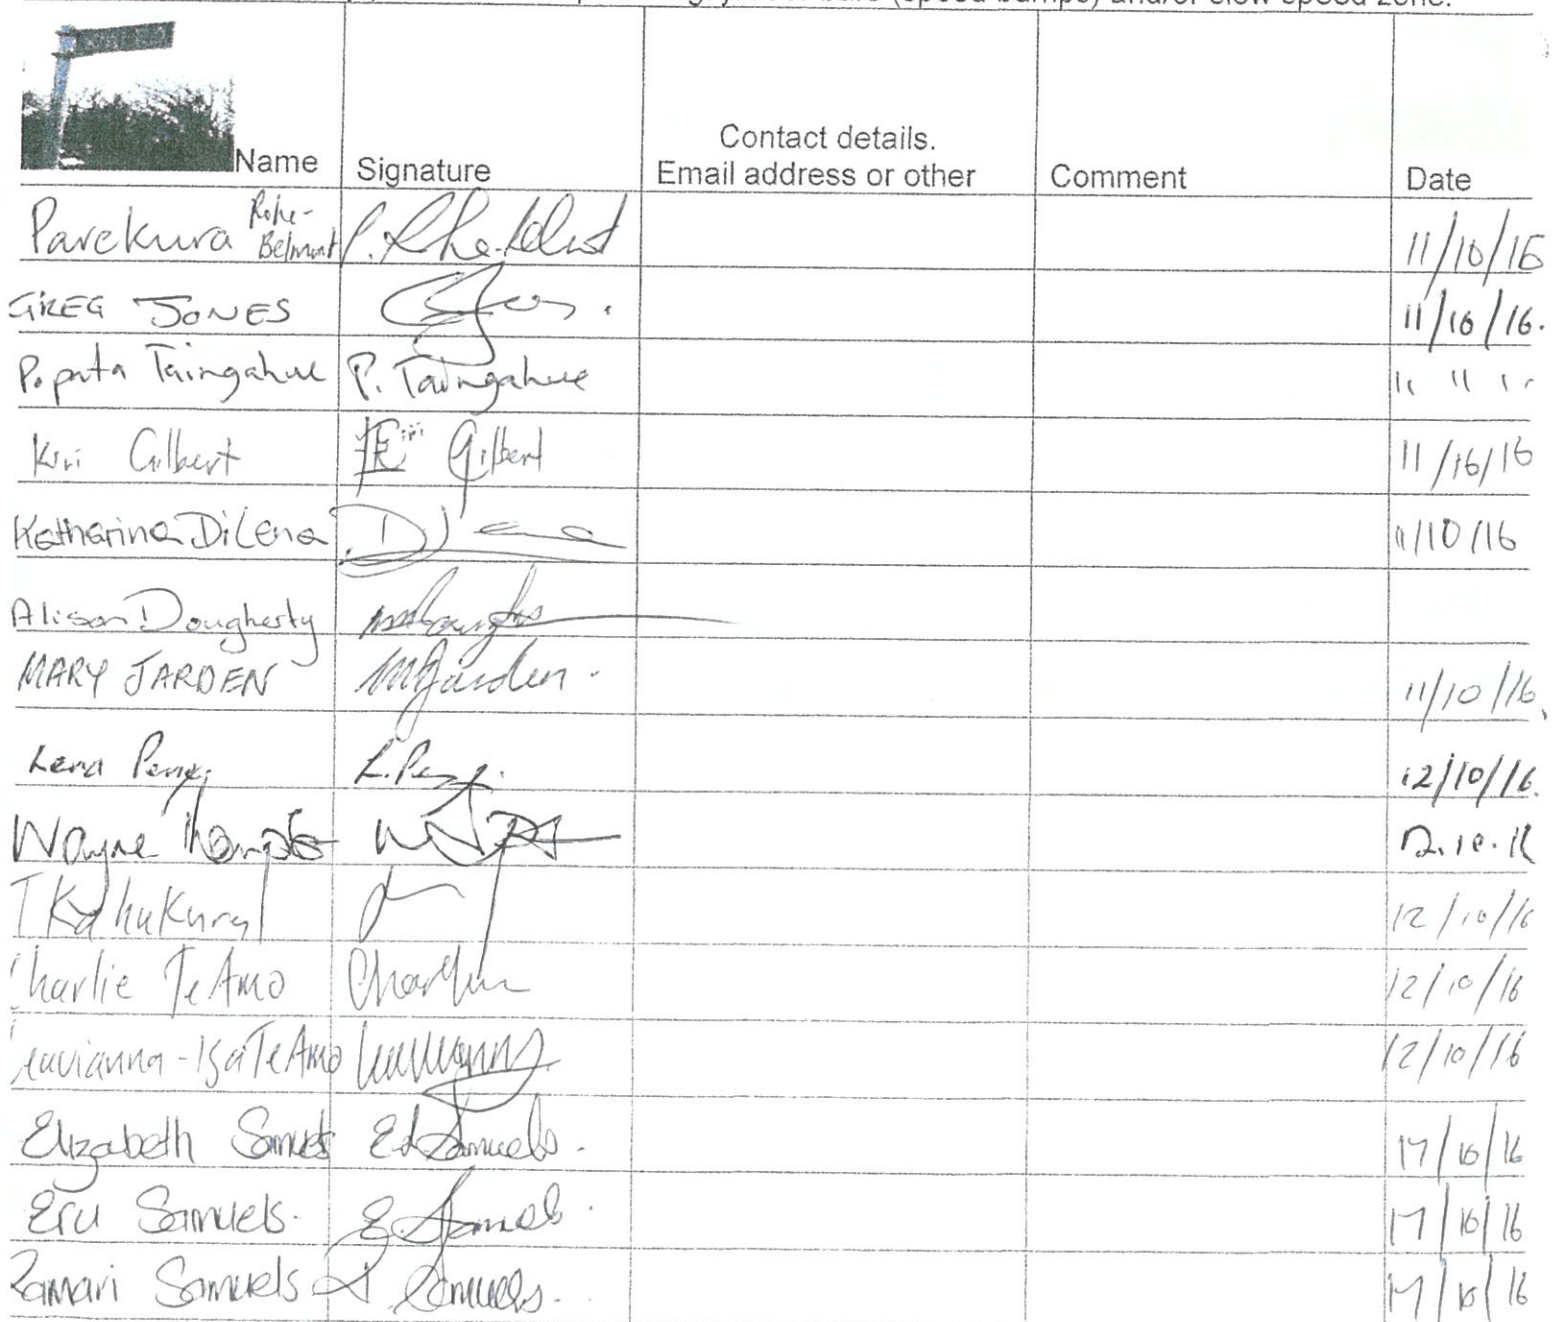 (speed bumps) and/or slow speed zone.
Contact details.
Name Signature Email address or other Comment Date
Parekura Rohe- Belmont 11/10/16
GREG JONES 11/10/16.
Popata Taingahue P. Taingahue 11 11 11
Kiri Gilbert Kiri Gilbert 11/10/16
Katharina DiLena 11/10/16
Alison Dougherty
MARY JARDEN M Jarden. 11/10/16
Lena Penny L. Penny. 12/10/16.
Wayne 12.10.16
T Kahukura 12/10/16
Charlie TeAmo Charlie 12/10/16
TeAmo 12/10/16
Elizabeth Samuels E Samuels. 17/10/16
Eru Samuels. E. Samuels. 17/10/16
Zamari Samuels Z Samuels. 17/10/16